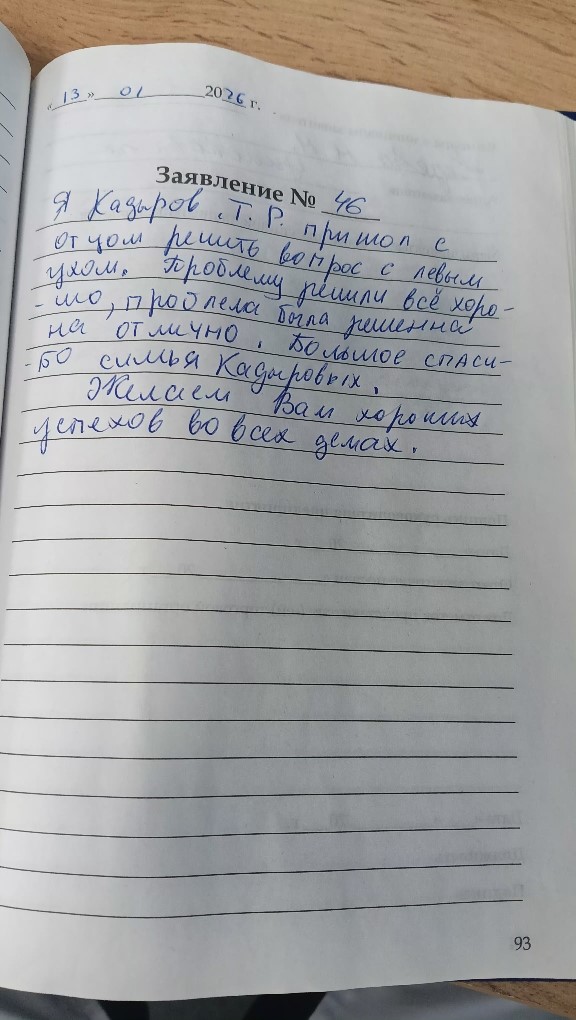 « 13 » 01 2026 г.
Заявление № 46
Я Кадыров .Т. Р. пришол с
отцом решить вопрос с левым
ухом. Проблему решили всё хоро-
-шо, проблема была решенна
на отлично. Большое спаси-
-бо симья Кадыровых.
Желаем Вам хороших
успехов во всех делах.
93